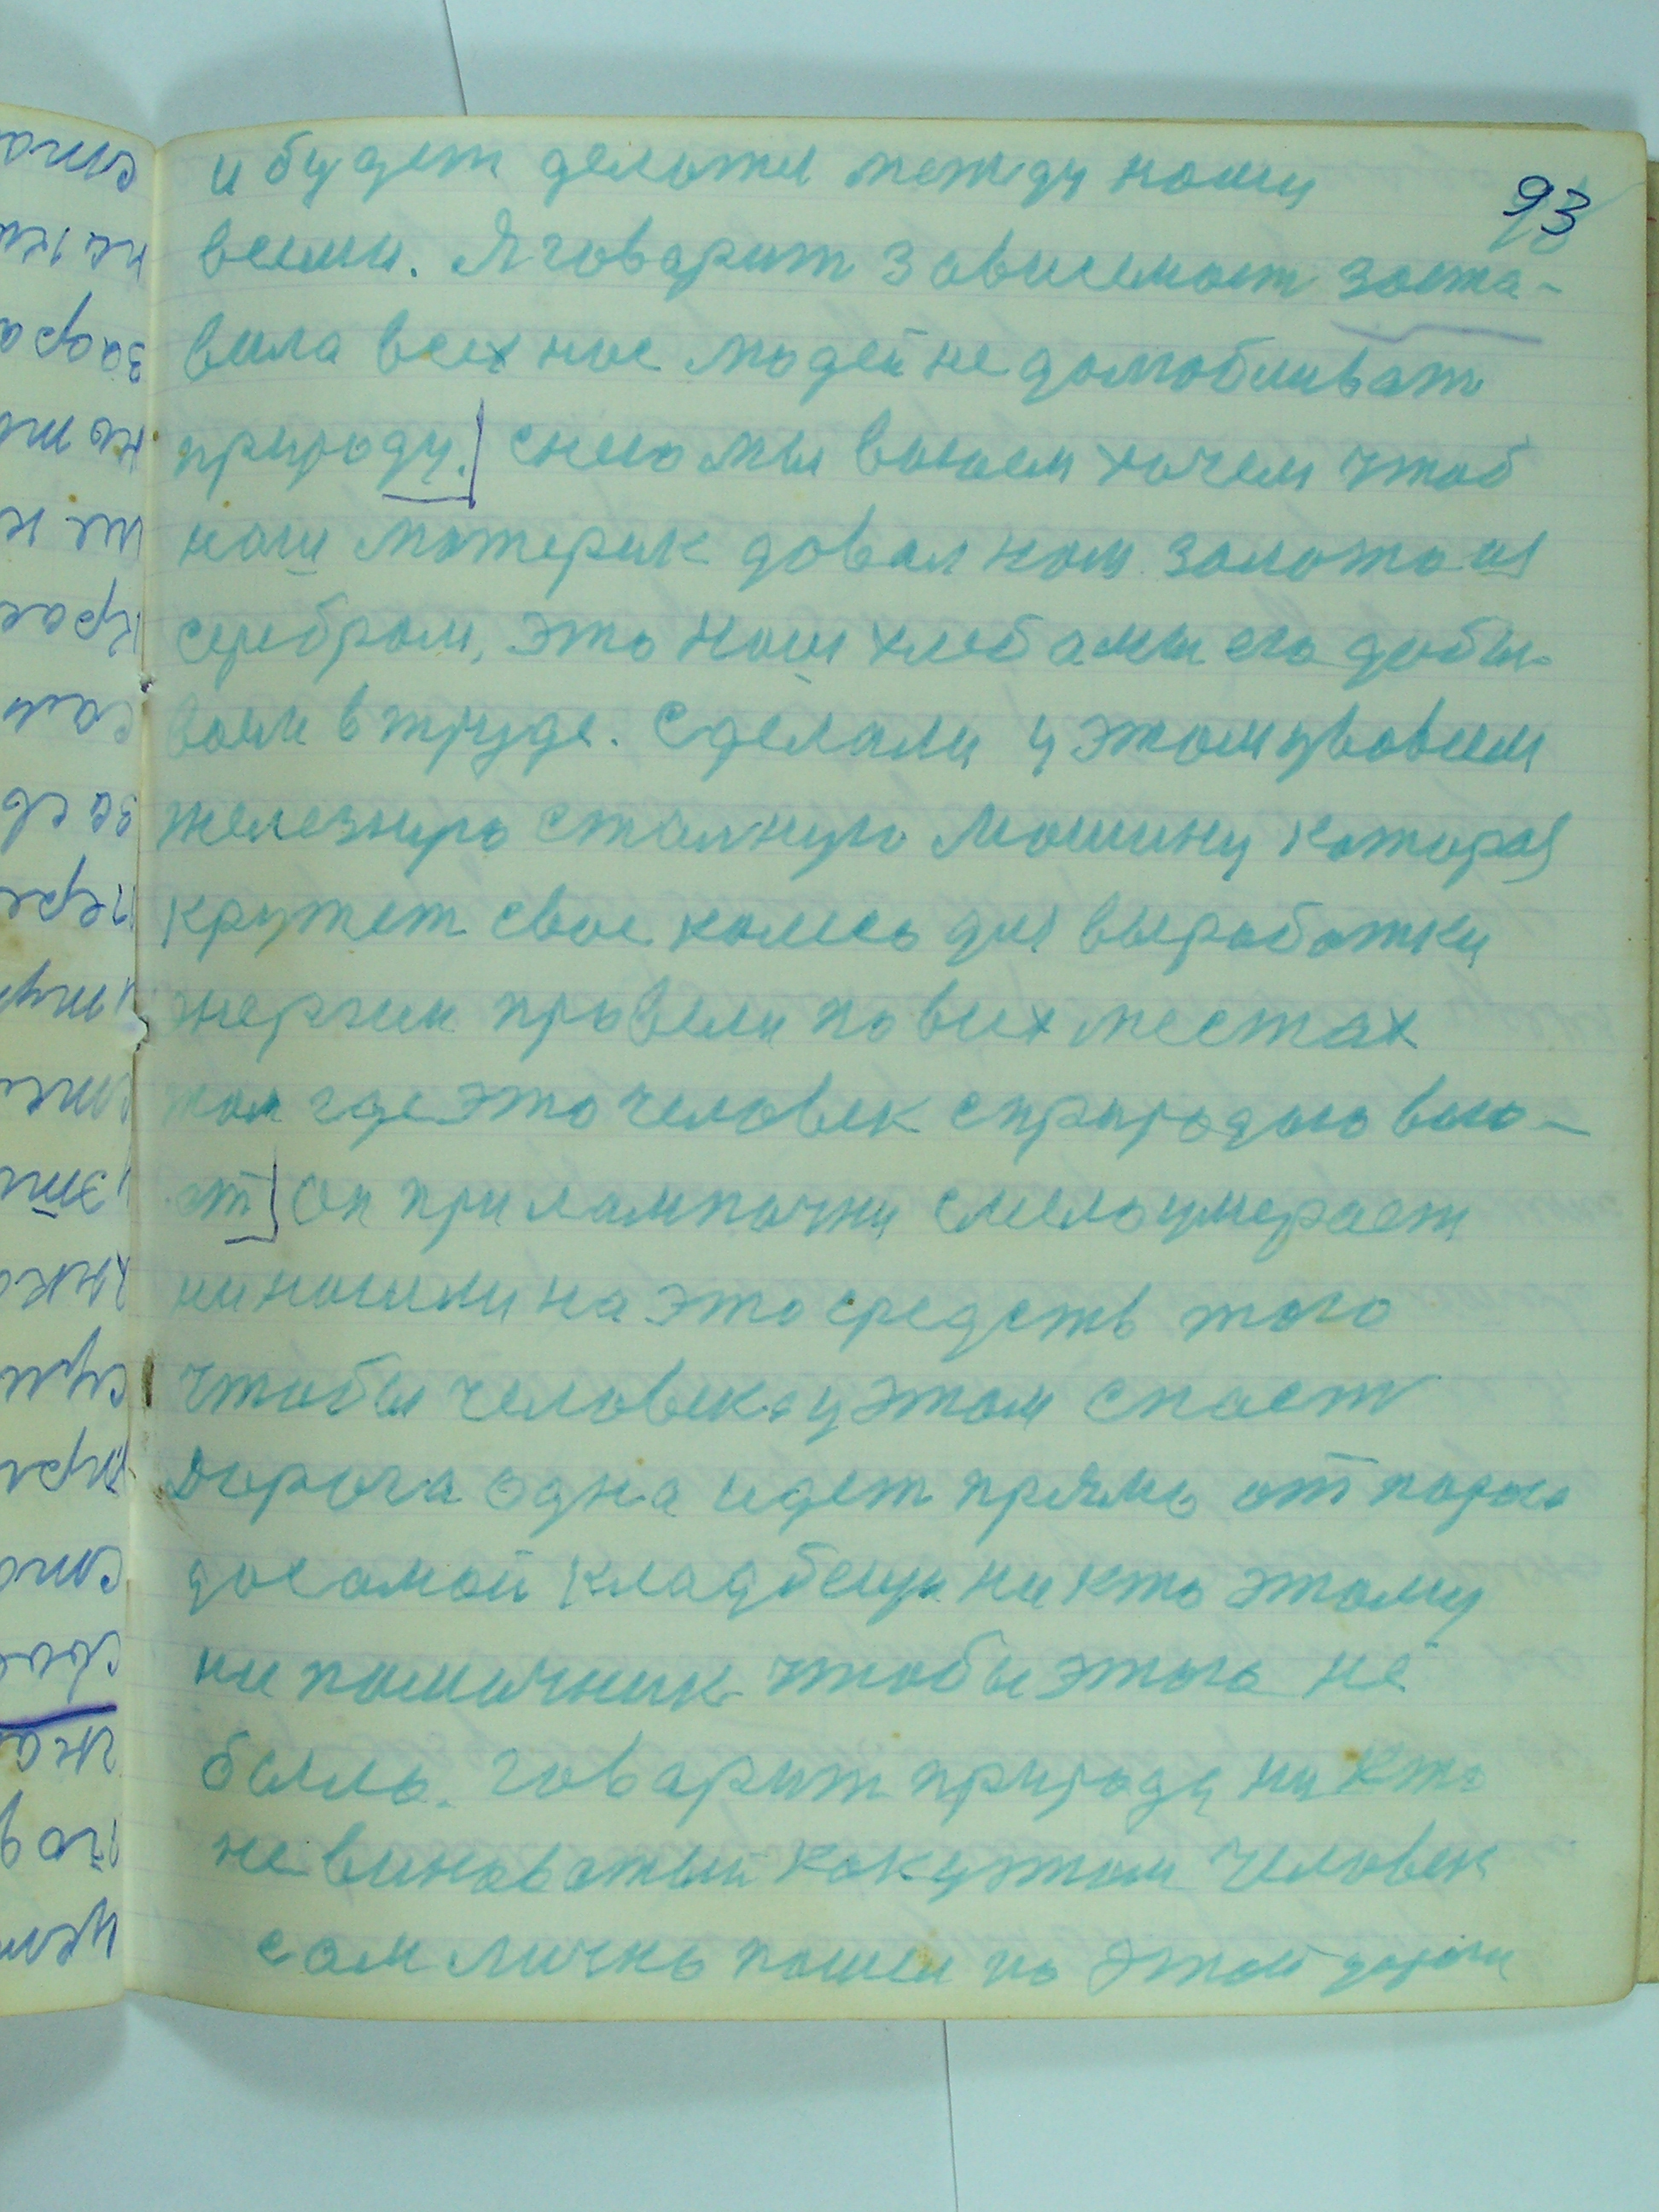 93
и будет делатл между нами
всеми. Я говарит зависемаст заста-
вила всех нас людей не далюбливат
природу. снею мы воюем хочем чтоб
наш материк давал нам золотом
серебром, это наш хлеб а мы его добы-
ваем в труде. Сделали у этому вовсем
железную сталную машину которая
крутет свое колесо для выработки
энергии провели по всех местах
там где это человек с природаю вою-
ет он при лампачки смело умерает
ни нашли на это средств того
чтобы человека у этом спаст
Дорога одна идет прямо от
до самой кладбещи никто этому
ни помичник чтобы этого не
былло. говарит природа никто
не виноватый как у этом человек
сам лично пошел по этой дороги